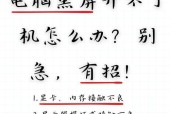 电脑黑屏开不了
机怎么办？别
急，有招！
1.显卡、内存接触不良